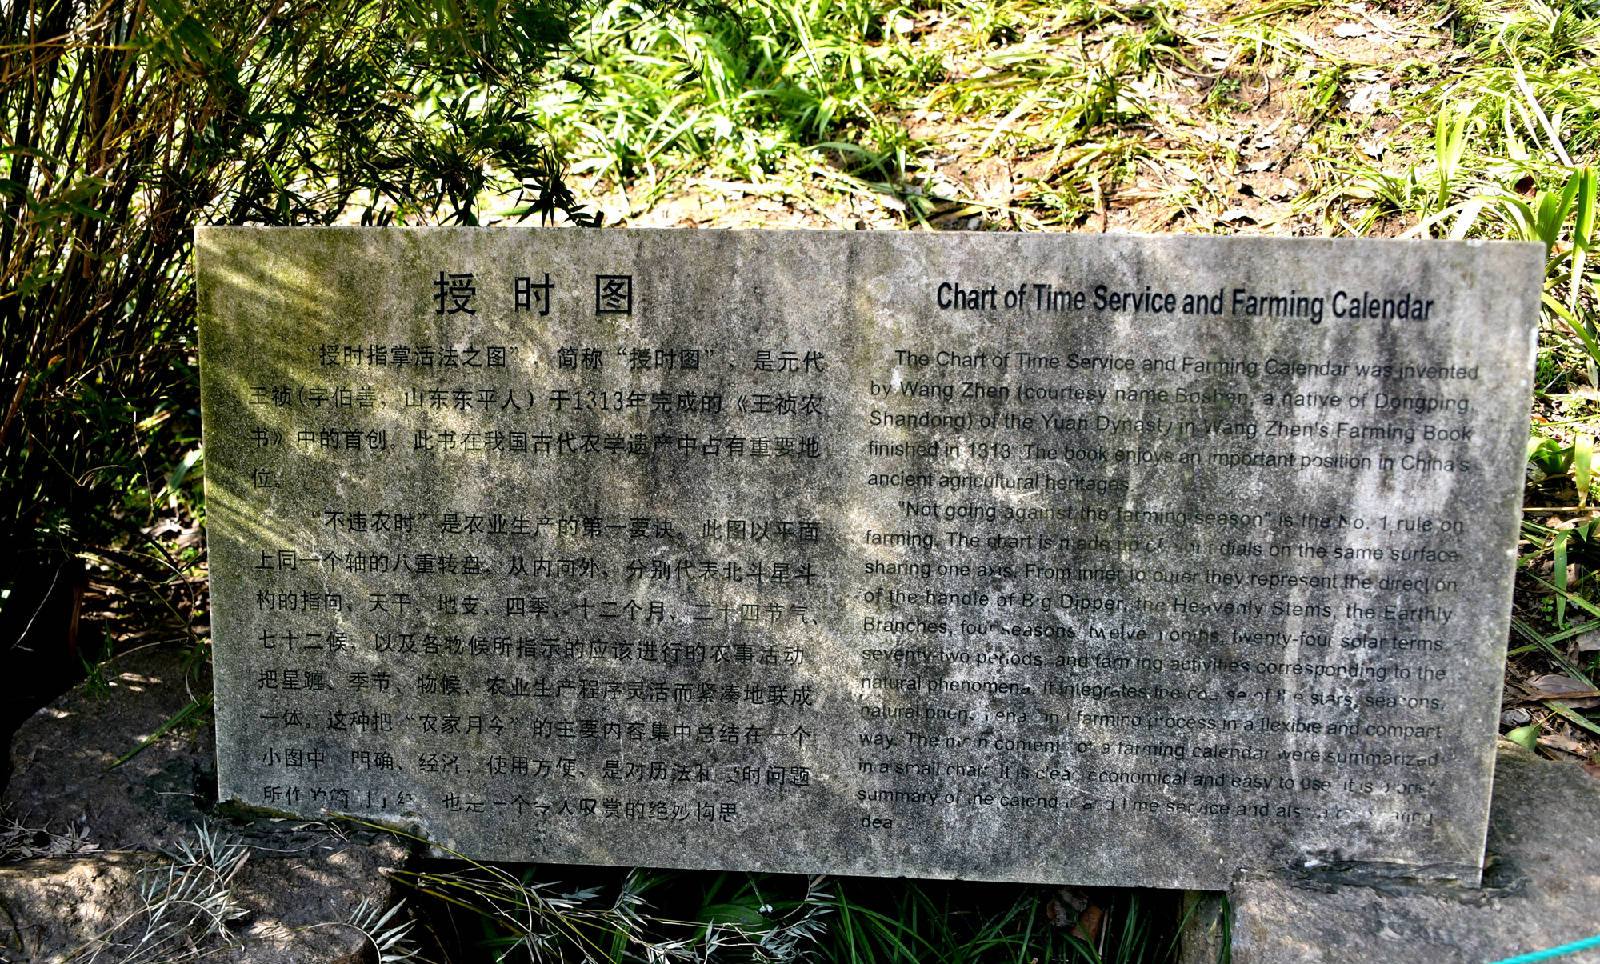 授时图
“授时指掌活法之图”，简称“授时图”，是元代
王祯(字伯善，山东东平人）于1313年完成的《王祯农
书》中的首创。此书在我国古代农学遗产中占有重要地
位。
“不违农时”是农业生产的第一要诀。此图以平面
上同一个轴的八重转盘，从内向外，分别代表北斗星斗
杓的指向、天干、地支、四季、十二个月、二十四节气、
七十二候，以及各物候所指示的应该进行的农事活动
把星躔、季节、物候、农业生产程序灵活而紧凑地联成
一体。这种把“农家月令”的主要内容集中总结在一个
小图中 明确、经济，使用方便，是对历法和 时问题
所作的简 ，也是一个令人叹赏的绝妙构思
Chart of Time Service and Farming Calendar
The Chart of Time Service and Farming Calendar was invented
by Wang Zhen (courtesy name Boshan, a native of Dongping,
Shandong) of the Yuan Dynasty in Wang Zhen's Farming Book
finished in 1313. The book enjoys an important position in China's
ancient agricultural heritages.
"Not going against the farming season" is the No. 1 rule on
farming. The chart is made up of dials on the same surface
sharing one axis. From inner to outer they represent the direction
of the handle of Big Dipper, the Heavenly Stems, the Earthly
Branches, four seasons, twelve months, twenty-four solar terms,
seventy-two periods, and farming activities corresponding to the
natural phenomena. It integrates the course of the stars, seasons,
natural and farming process in a flexible and compart
way. The main content of a farming calendar were summarized
in a small chart. It is clear, economical and easy to use. It is
summary of the calendar and time service and also
dea